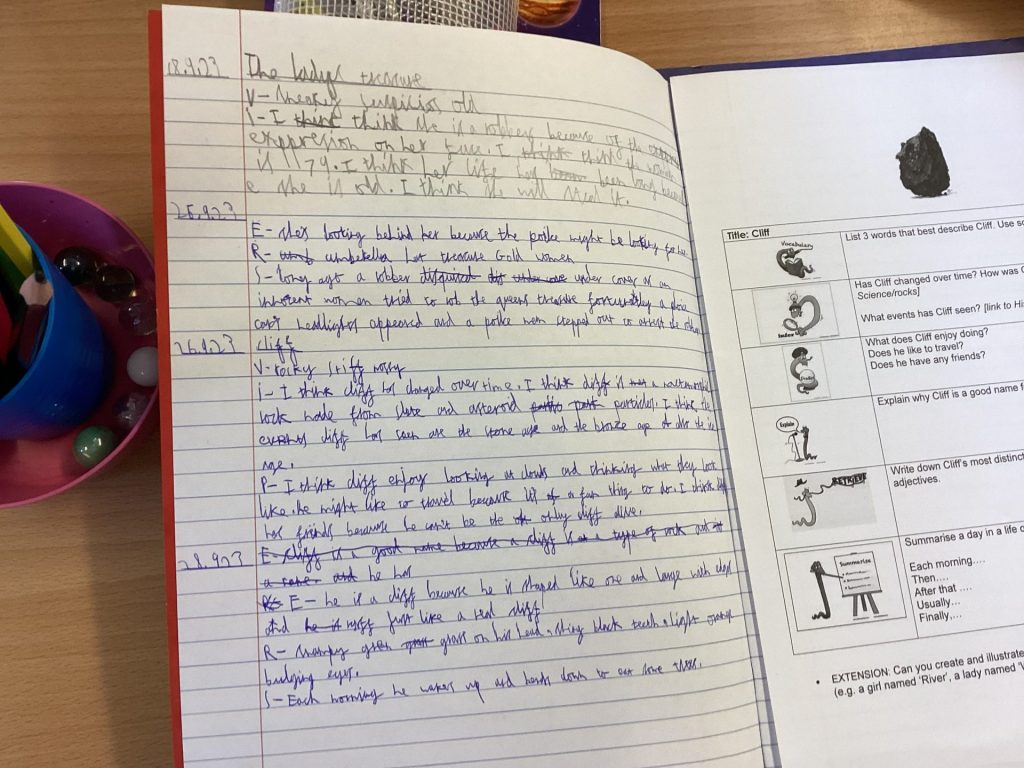 18.9.23 The ladys treasure
V- Sneaky suspicios old
I- I think think she is a robber because of the
exppresion on her face. I think think she
is 79. I think her life has been long
she is old. I think she will steal it.
25.9.23
E- shes looking behind her because the police might be looking for her
R- umberella hat treasure Gold women
S- long ago a robber disguised under cover as an
women tried to rob the queens treasure fortunatley a
cars headlights appeared and a police men stepped out to arrest the
26.9.23 cliff
V- rocky stiff mossy
i- I think cliff has changed over time. I think cliff is not a
rock made from slate and asteroid particles. I think the
events cliff has seen are the stone age and the bronze age also the ice
age.
P- I think cliff enjoy looking at clouds and thinking what they look
like. he might like to travel because its a fun thing to do. I think cliff
has friends because he can't be the only cliff alive.
28.9.23 E- cliff is a good name because a cliff is a type of rock
and he has
E- he is a cliff because he is shaped like one and large with
and he is just like a real cliff
R- green grass on his head, shiny black teeth, light orange
bulging eyes.
S- Each morning he wakes up and heads down to eat some
Title: Cliff
Vocabulary
List 3 words that best describe Cliff. Use
Infer
Has Cliff changed over time? How was
Science/rocks]
What events has Cliff seen? [link to
Predict
What does Cliff enjoy doing?
Does he like to travel?
Does he have any friends?
Explain
Explain why Cliff is a good name
RETRIEVE
Write down Cliff's most
adjectives.
Summarise
Summarise a day in a life
Each morning….
Then….
After that ….
Usually…
Finally,…
• EXTENSION: Can you create and illustrate
(e.g. a girl named 'River', a lady named